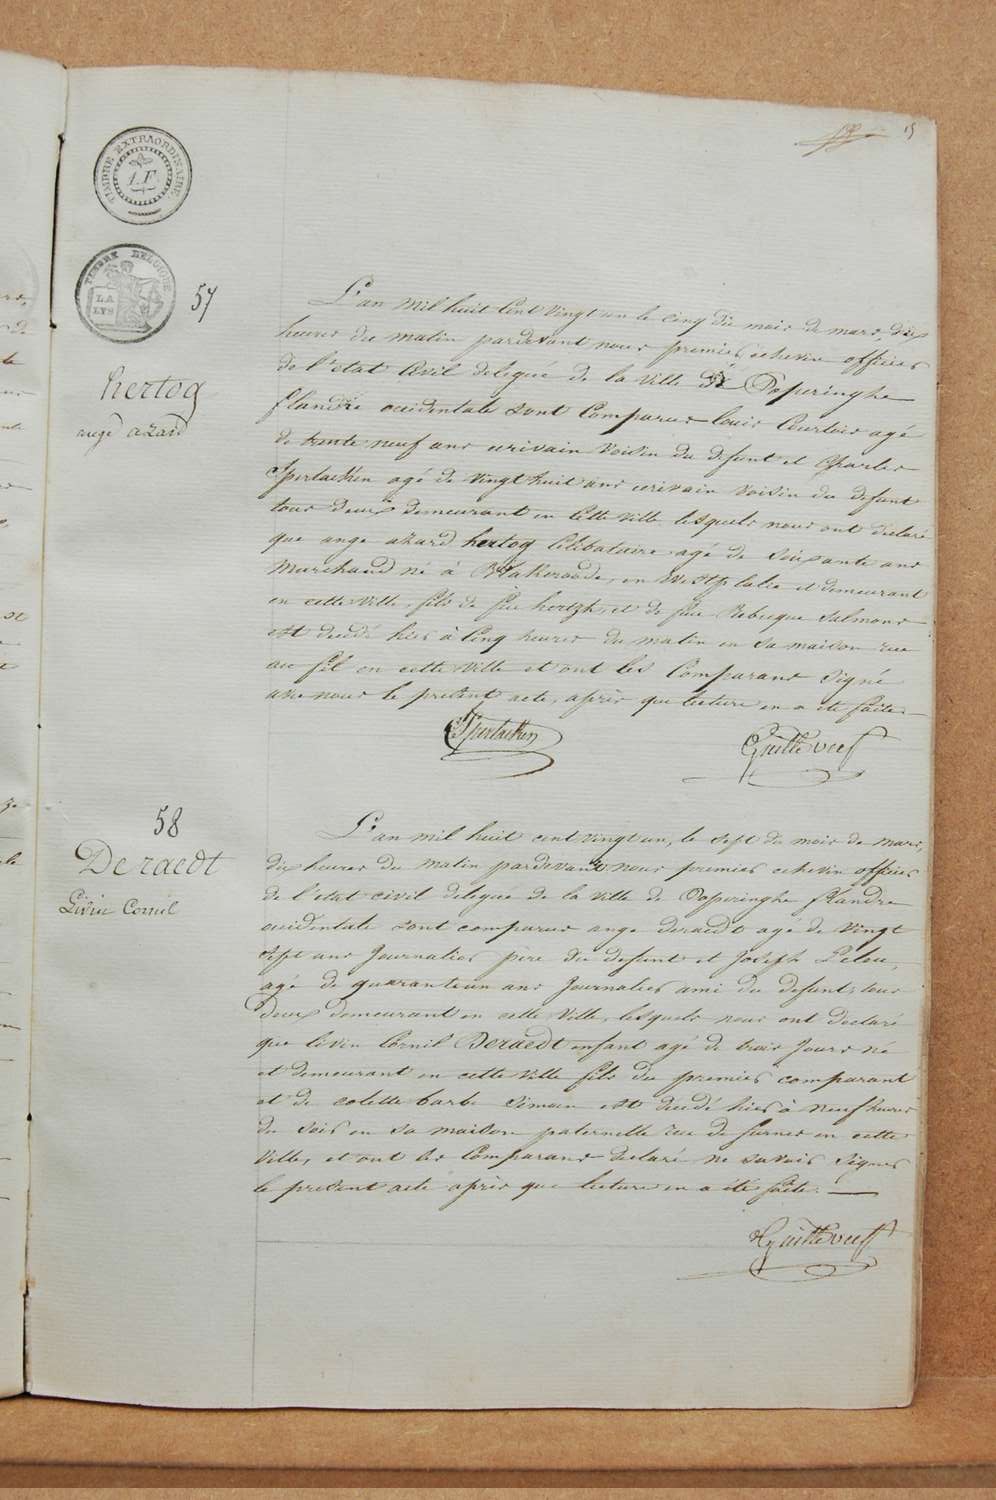 15
TIMBRE EXTRAORDINAIRE
1.F.
TIMBRE BELGIQUE
LA LYS
57
hertog
ange azard
L'an mil huit Cent vingt un le cinq du mois de mars, dix
heures du matin pardevant nous premier echevin officier
de l'etat Civil delegué de la Ville de Poperinghe
flandre occidentale sont Comparus louis Courtois agé
de trente neuf ans ecrivain Voisin du defunt et Charles
Sperlaeken agé de vingt huit ans ecrivain voisin du defunt
tous deux demeurant en Cette Ville, lesquels nous ont declaré
que ange azard hertog Celibataire agé de soixante ans
Marchand né à en Westphalie et demeurant
en cette Ville, fils de feu hertzh, et de feue Rebecque Salmons
est decedé hier à Cinq heures du matin en sa maison rue
au fil en cette Ville et ont les Comparans Signé
avec nous le present acte, après que lecture en a eté faite.
Sperlaeken
58
Deraedt
Livin Cornil
L'an mil huit cent vingt un, le sept du mois de mars,
dix heures du matin pardevant nous premier echevin officier
de l'etat civil delegué de la Ville de Poperinghe flandre
occidentale sont comparus ange deraedt agé de Vingt
sept ans Journalier père du defunt et Joseph Lelou,
agé de quarante un ans Journalier ami du defunt, tous
deux demeurant en cette Ville, lesquels nous ont declaré
que livin Cornil Deraedt enfant agé de trois Jours né
et demeurant en cette Ville fils du premier comparant
et de colette barbe Simoen est decedé hier à neuf heures
du soir en sa maison paternelle rue de furnes en cette
Ville, et ont les Comparans declaré ne savoir Signer
le present acte après que lecture en a été faite.